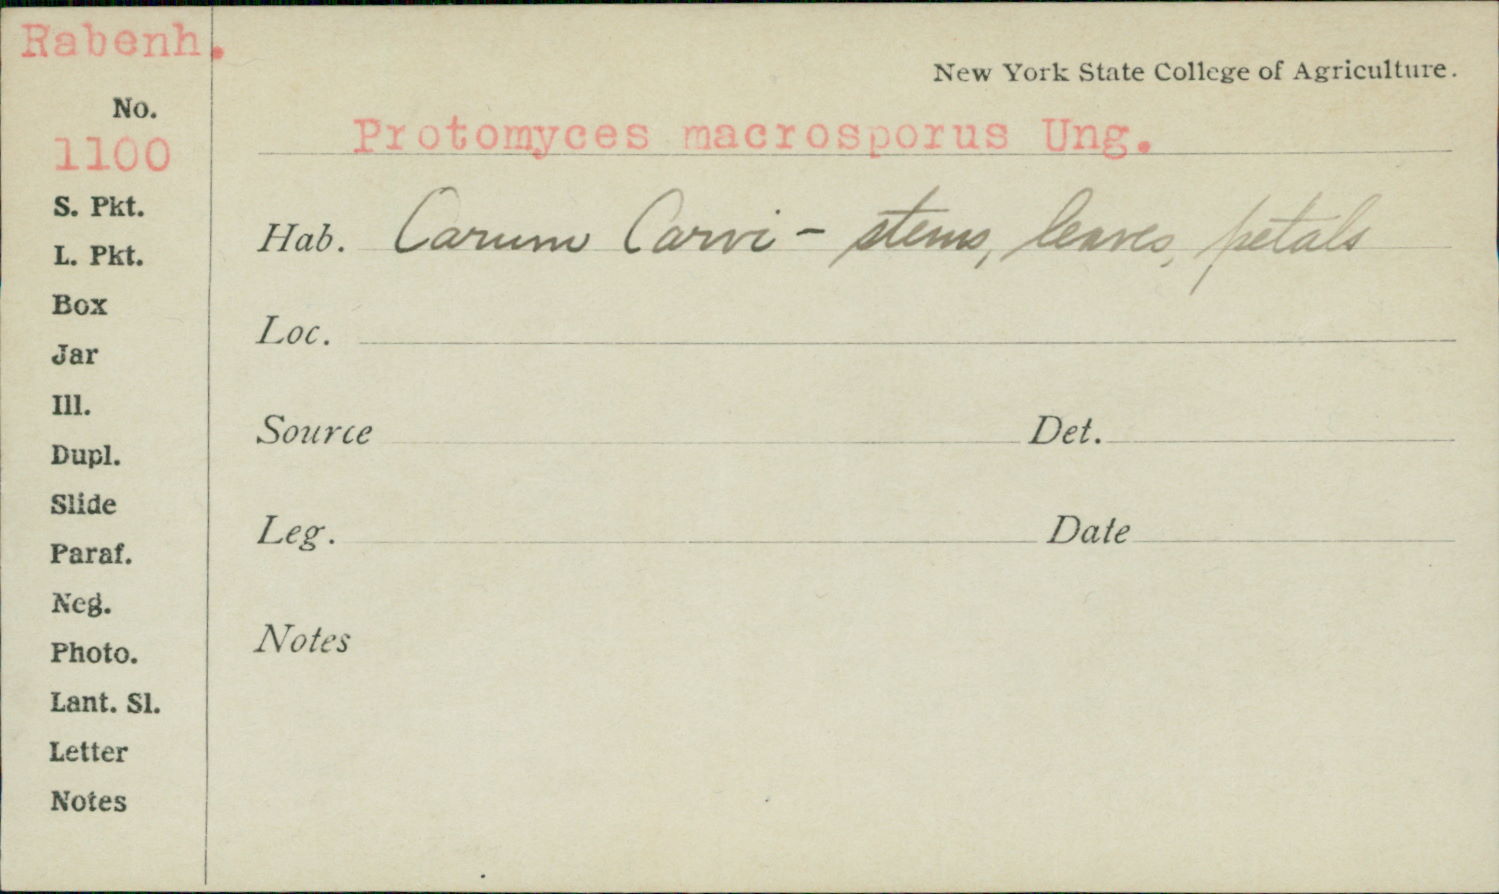 Rabenh.
New York State College of Agriculture.
No.
1100
Protomyces macrosporus Ung.
S. Pkt.
L. Pkt.
Box
Jar
Ill.
Dupl.
Slide
Paraf.
Neg.
Photo.
Lant. Sl.
Letter
Notes
Hab. Carum Carvi - stems, leaves, petals
Loc.
Source Det.
Leg. Date
Notes